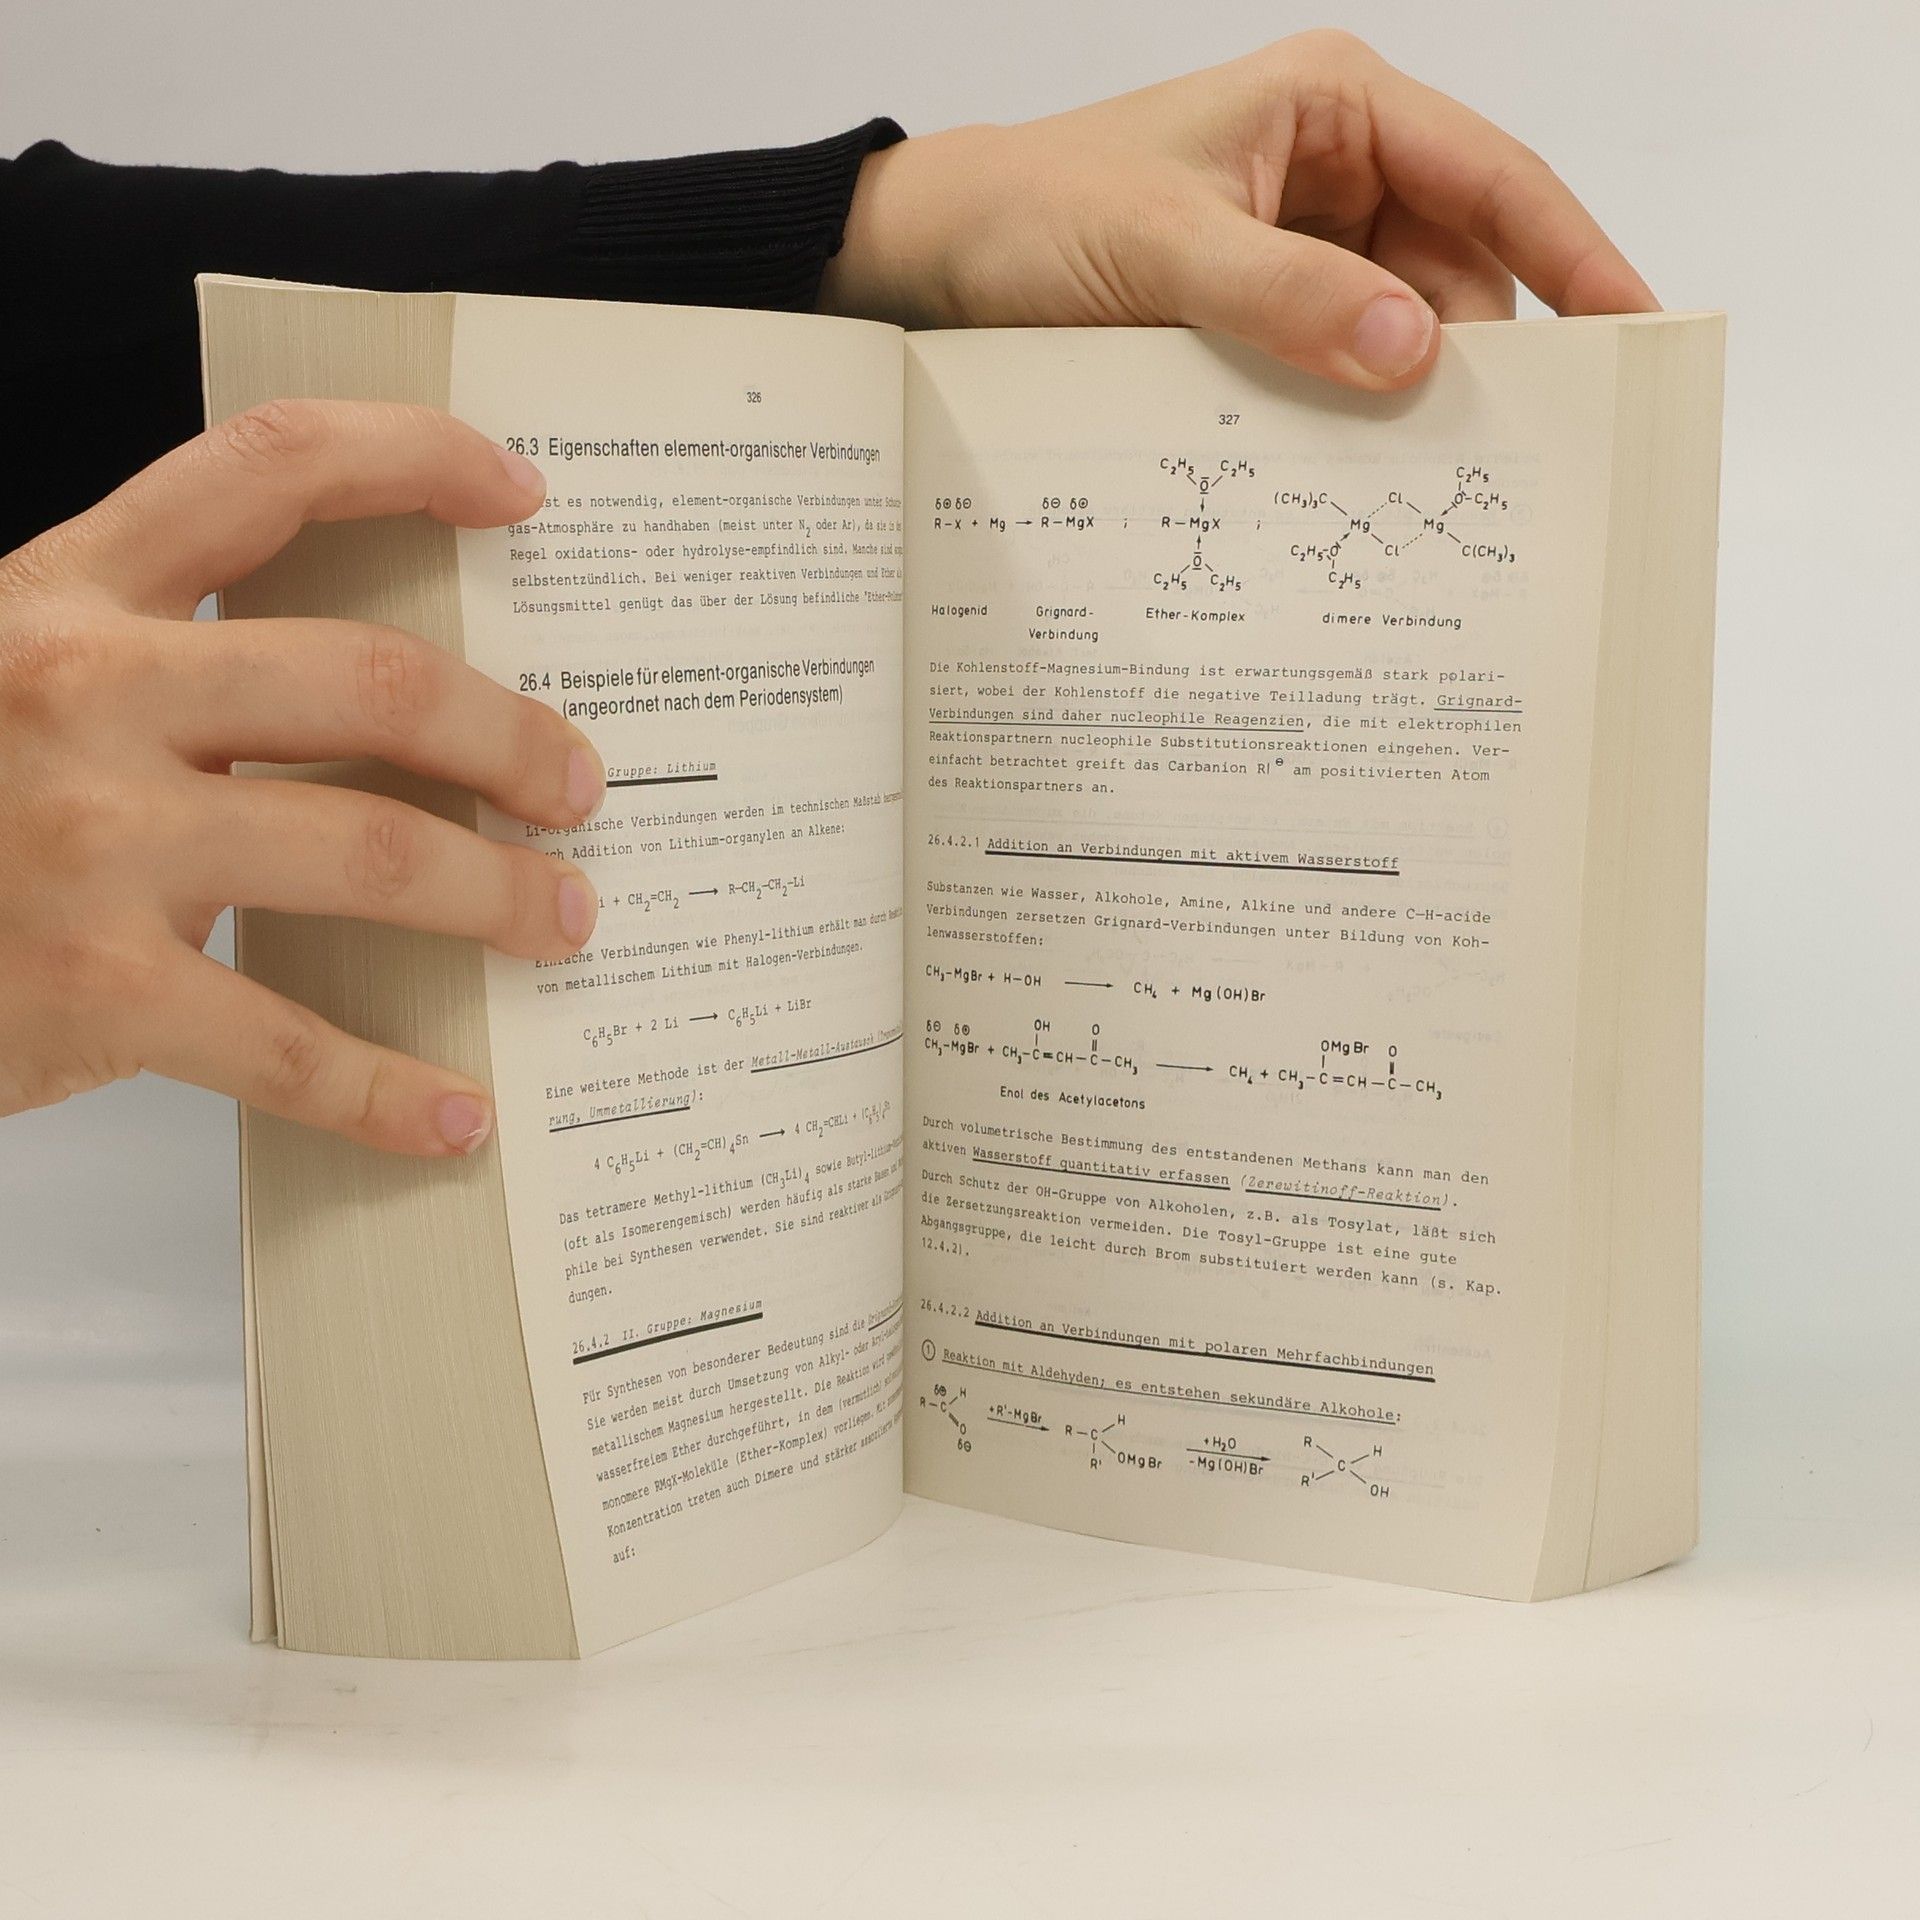 326
26.3 Eigenschaften element-organischer Verbindungen
ist es notwendig, element-organische Verbindungen unter
gas-Atmosphäre zu handhaben (meist unter N2 oder Ar), da sie in
Regel oxidations- oder hydrolyse-empfindlich sind. Manche sind
selbstentzündlich. Bei weniger reaktiven Verbindungen und Ether
Lösungsmittel genügt das über der Lösung befindliche
26.4 Beispiele für element-organische Verbindungen
(angeordnet nach dem Periodensystem)
Gruppe: Lithium
Li-organische Verbindungen werden im technischen Maßstab
Addition von Lithium-organylen an Alkene:
+ CH2=CH2 ⟶ R–CH2–CH2–Li
Einfache Verbindungen wie Phenyl-lithium erhält man durch
von metallischem Lithium mit Halogen-Verbindungen.
C6H5Br + 2 Li ⟶ C6H5Li + LiBr
Eine weitere Methode ist der Metall-Metall-Austausch
rung, Ummetallierung):
4 C6H5Li + (CH2=CH)4Sn ⟶ 4 CH2=CHLi + (C6H5)4Sn
Das tetramere Methyl-lithium (CH3Li)4 sowie Butyl-lithium
(oft als Isomerengemisch) werden häufig als starke Basen
phile bei Synthesen verwendet. Sie sind reaktiver als
dungen.
26.4.2 II. Gruppe: Magnesium
Für Synthesen von besonderer Bedeutung sind die
Sie werden meist durch Umsetzung von Alkyl- oder
metallischem Magnesium hergestellt. Die Reaktion wird
wasserfreiem Ether durchgeführt, in dem (vermutlich)
monomere RMgX-Moleküle (Ether-Komplex) vorliegen. Mit
Konzentration treten auch Dimere und stärker
auf:
327
C2H5 C2H5 C2H5
δ⊕ δ⊖ δ⊖ δ⊕ O (CH3)3C Cl O–C2H5
R–X + Mg ⟶ R–MgX ; R–MgX ; Mg Mg
O C2H5–O Cl C(CH3)3
C2H5 C2H5 C2H5
Halogenid Grignard- Ether-Komplex dimere Verbindung
Verbindung
Die Kohlenstoff-Magnesium-Bindung ist erwartungsgemäß stark polari-
siert, wobei der Kohlenstoff die negative Teilladung trägt. Grignard-
Verbindungen sind daher nucleophile Reagenzien, die mit elektrophilen
Reaktionspartnern nucleophile Substitutionsreaktionen eingehen. Ver-
einfacht betrachtet greift das Carbanion R|⊖ am positivierten Atom
des Reaktionspartners an.
26.4.2.1 Addition an Verbindungen mit aktivem Wasserstoff
Substanzen wie Wasser, Alkohole, Amine, Alkine und andere C–H-acide
Verbindungen zersetzen Grignard-Verbindungen unter Bildung von Koh-
lenwasserstoffen:
CH3–MgBr + H–OH ⟶ CH4 + Mg(OH)Br
δ⊖ δ⊕ OH O OMgBr O
CH3–MgBr + CH3–C=CH–C–CH3 ⟶ CH4 + CH3–C=CH–C–CH3
Enol des Acetylacetons
Durch volumetrische Bestimmung des entstandenen Methans kann man den
aktiven Wasserstoff quantitativ erfassen (Zerewitinoff-Reaktion).
Durch Schutz der OH-Gruppe von Alkoholen, z.B. als Tosylat, läßt sich
die Zersetzungsreaktion vermeiden. Die Tosyl-Gruppe ist eine gute
Abgangsgruppe, die leicht durch Brom substituiert werden kann (s. Kap.
12.4.2).
26.4.2.2 Addition an Verbindungen mit polaren Mehrfachbindungen
① Reaktion mit Aldehyden; es entstehen sekundäre Alkohole:
δ⊕ H +R'-MgBr H +H2O R H
R–C R–C ⟶ C
O OMgBr -Mg(OH)Br R' OH
δ⊖ R'